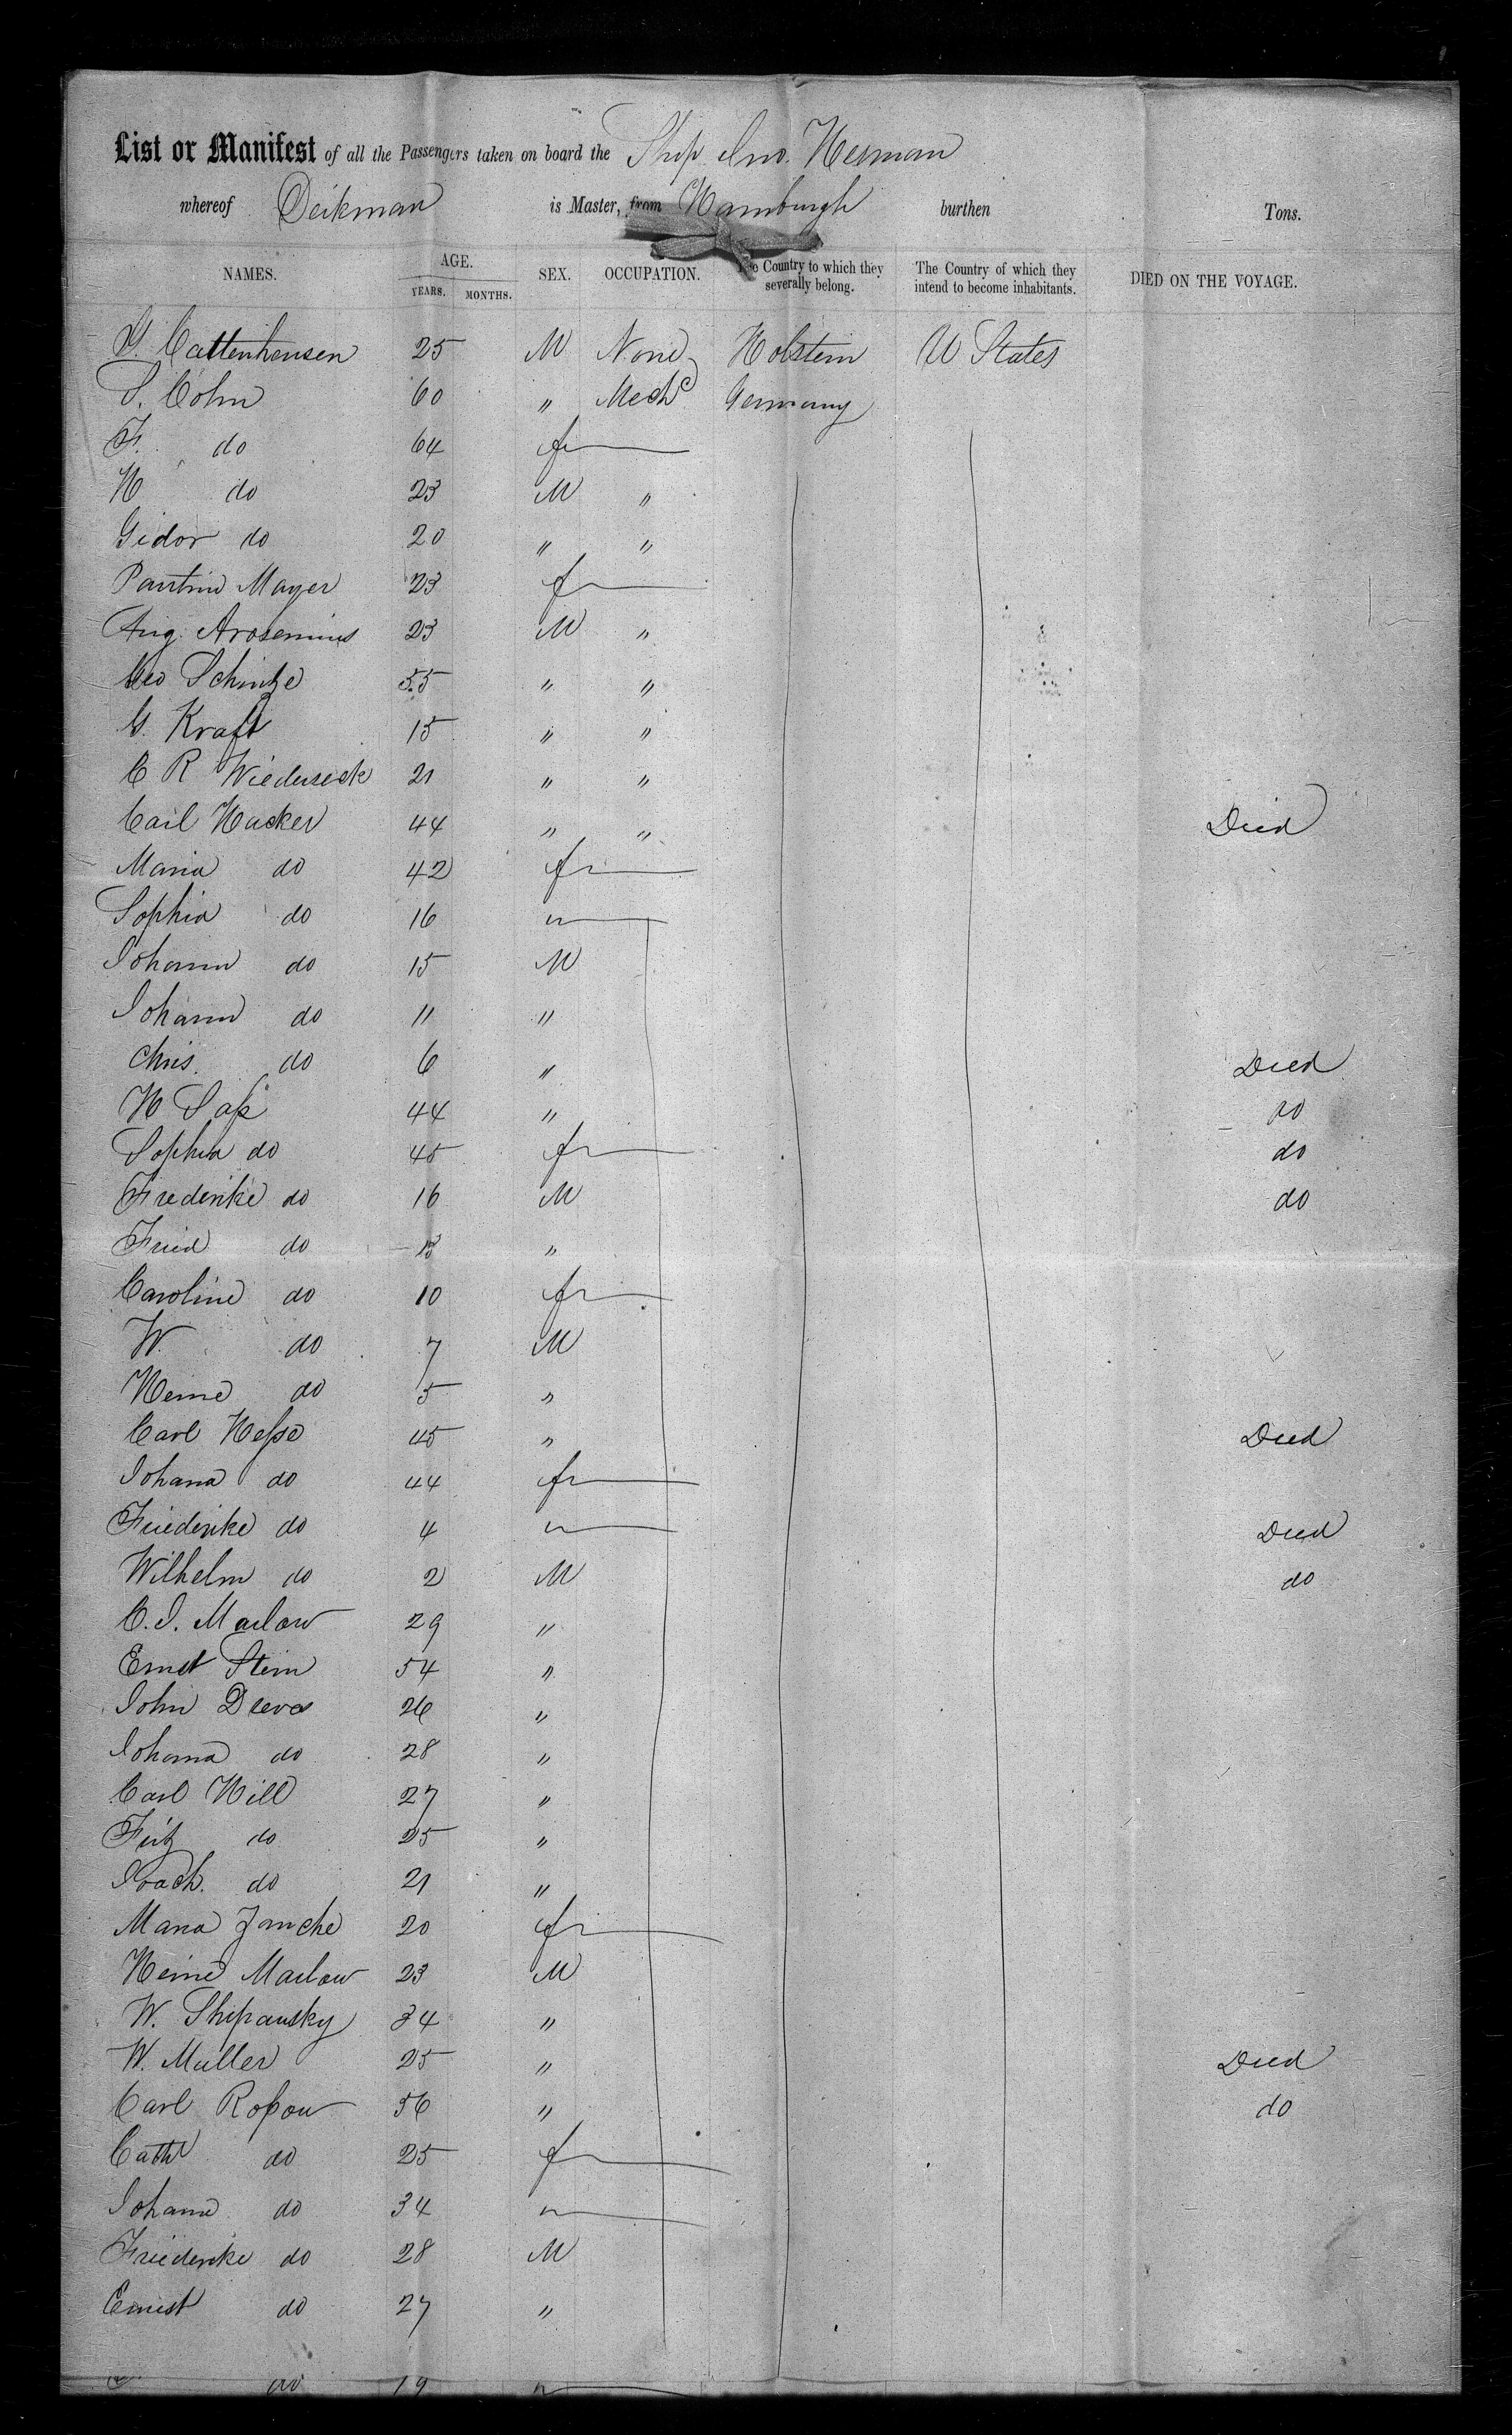 List or Manifest of all the Passengers taken on board the Ship Jno. Herman
whereof Deikman is Master, from Hamburgh burthen Tons.
NAMES. AGE. YEARS. MONTHS. SEX. OCCUPATION. The Country to which they severally belong. The Country of which they intend to become inhabitants. DIED ON THE VOYAGE.
25 M None Holstein U States
S. Cohn 60 " Mechc Germany
F. do 64 f
H do 23 M "
Gidor do 20 " "
Mayer 23 f
Aug. Arosenius 23 M "
Geo Schintze 55 " "
G. Kraft 15 " "
C R 21 " "
Carl Hacker 44 " " Died
Maria do 42 f
Sophia do 16 "
Johann do 15 M
Johann do 11 "
Chris. do 6 " Died
H Saß 44 " do
Sophia do 45 f do
Frederike do 16 M do
Fried do 13 "
Caroline do 10 f
W. do 7 M
Heine do 5 "
Carl Heße 45 " Died
Johana do 44 f
Friederike do 4 " Died
Wilhelm do 2 M do
C. J. Marlow 29 "
Ernst Stein 54 "
John Drews 26 "
Johana do 28 "
Carl Hill 27 "
Fritz do 25 "
Joach. do 21 "
Maria Janche 20 f
Heine Marlow 23 M
W. Shepansky 34 "
W. Muller 25 " Died
Carl Roßow 56 " do
Cath do 25 f
Johana do 34 "
Friederike do 28 M
Ernst do 27 "
do 19 "